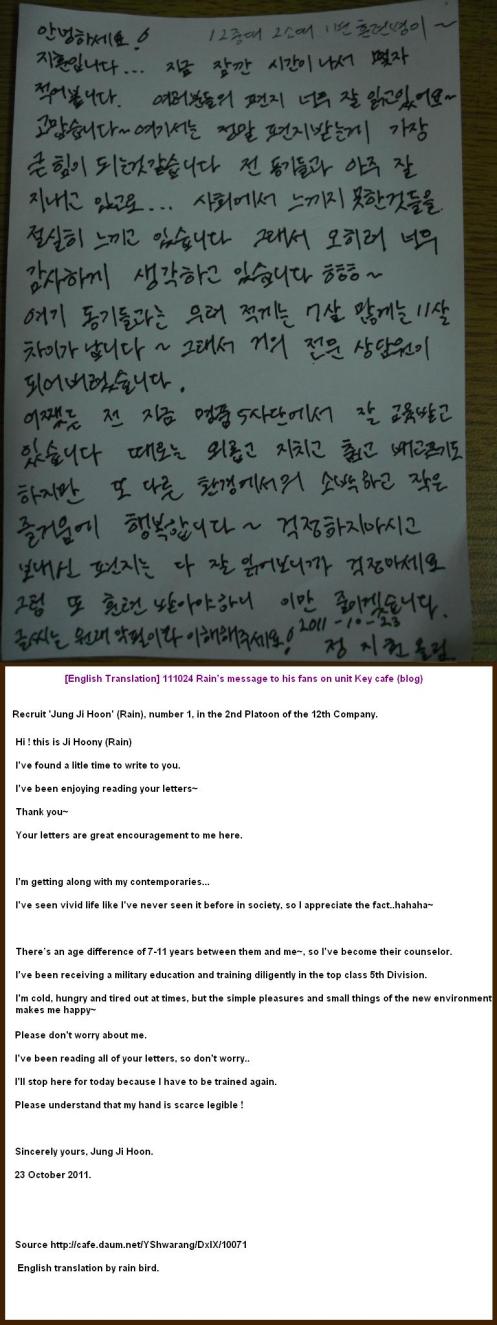 안녕하세요! 12중대 2소대 1번 훈련병이~
지훈입니다... 지금 잠깐 시간이 나서 몇자
적어봅니다. 여러분들의 편지 너무 잘 읽고있어요~
고맙습니다~ 여기서는 정말 편지받는게 가장
큰 힘이 되는것같습니다 전 동기들과 아주 잘
지내고 있고요... 사회에서 느끼지 못한것들을
절실히 느끼고 있습니다 그래서 오히려 너무
감사하게 생각하고 있습니다 ㅎㅎㅎ~
여기 동기들과는 무려 적게는 7살 많게는 11살
차이가 납니다~ 그래서 거의 전문 상담원이
되어버렸습니다.
어쨌든 전 지금 명품 5사단에서 잘 교육받고
있습니다 때로는 외롭고 지치고 춥고 배고프기도
하지만 또 다른 환경에서의 소박하고 작은
즐거움에 행복합니다~ 걱정하지마시고
보내신 편지는 다 잘 읽어보니까 걱정마세요
그럼 또 훈련 받아야하니 이만 줄이겠습니다.
글씨는 원래 악필이라 이해해주세요! 2011-10-23
정지훈 올림.
[English Translation] 111024 Rain's message to his fans on unit Key cafe (blog)
Recruit 'Jung Ji Hoon' (Rain), number 1, in the 2nd Platoon of the 12th Company.
Hi ! this is Ji Hoony (Rain)
I've found a litle time to write to you.
I've been enjoying reading your letters~
Thank you~
Your letters are great encouragement to me here.
I'm getting along with my contemporaries...
I've seen vivid life like I've never seen it before in society, so I appreciate the fact..hahaha~
There's an age difference of 7-11 years between them and me~, so I've become their counselor.
I've been receiving a military education and training diligently in the top class 5th Division.
I'm cold, hungry and tired out at times, but the simple pleasures and small things of the new environment
makes me happy~
Please don't worry about me.
I've been reading all of your letters, so don't worry..
I'll stop here for today because I have to be trained again.
Please understand that my hand is scarce legible !
Sincerely yours, Jung Ji Hoon.
23 October 2011.
Source http://cafe.daum.net/YShwarang/DxlX/10071
English translation by rain bird.